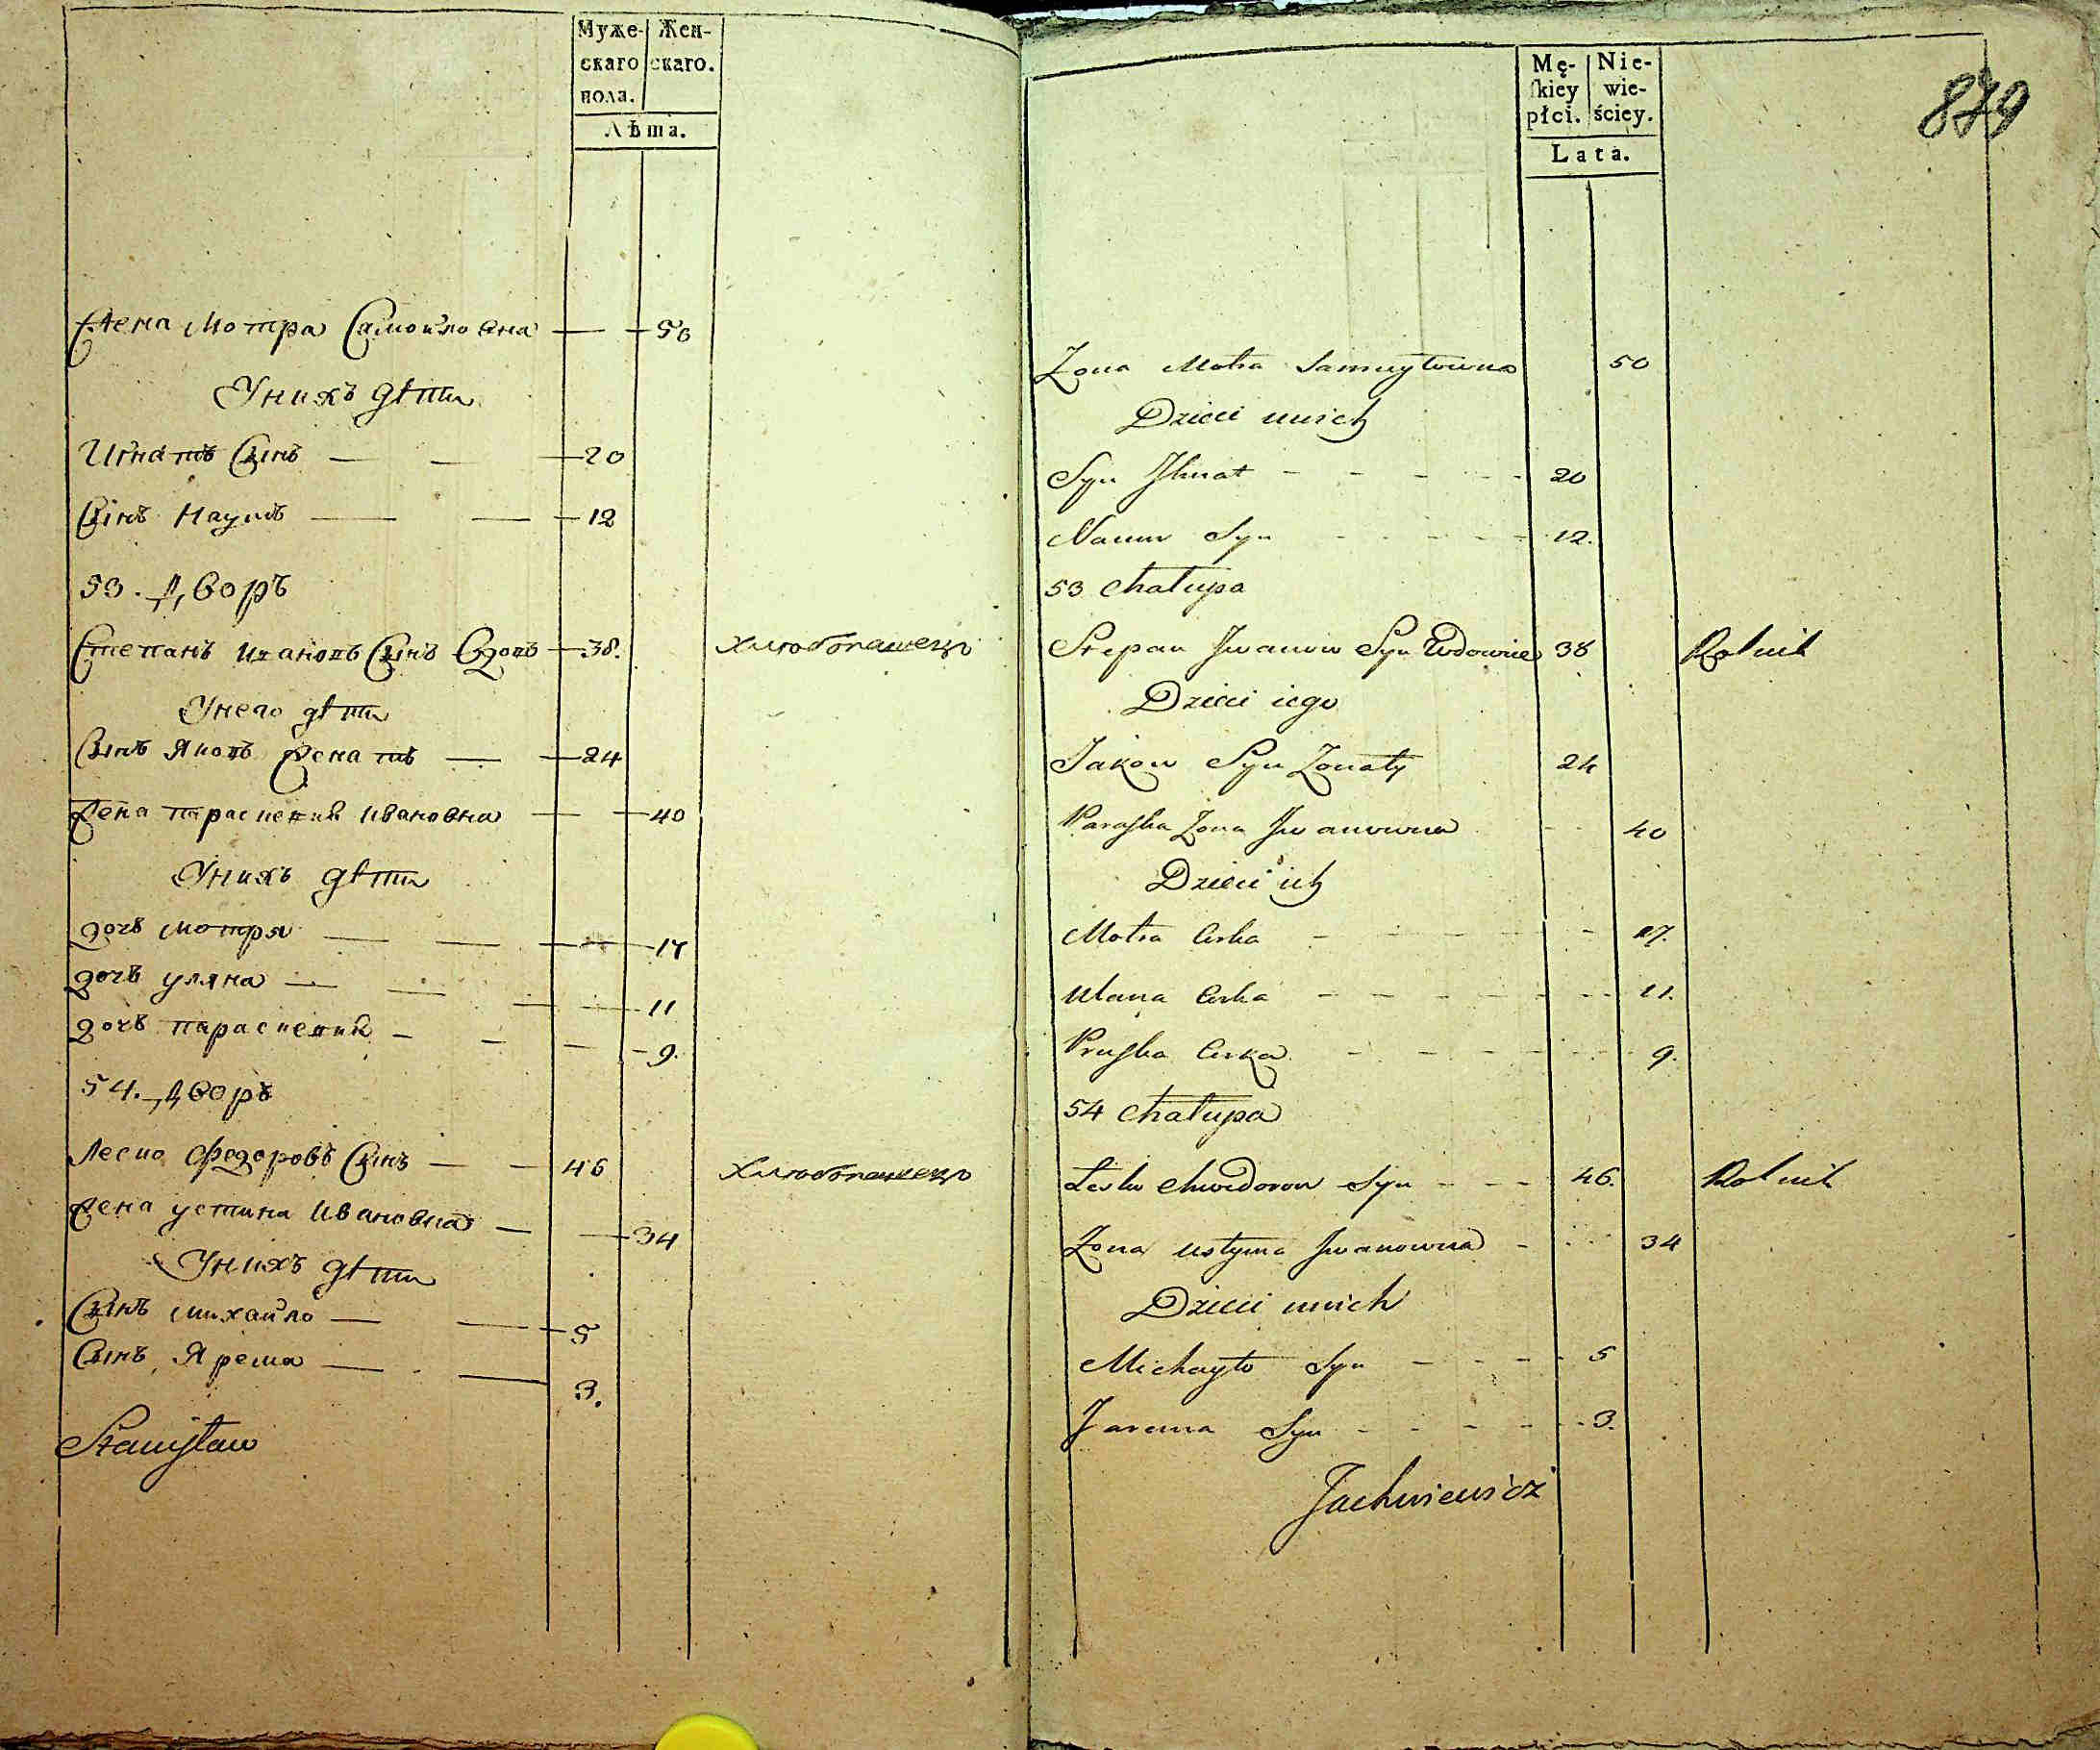 Муже-
скаго
пола.
Жен-
скаго.
Лѣта.
Жена Мотра Самойловна 50
У нихъ дѣти
Игнатъ Сынъ 20
Сынъ Наумъ 12
53. Дворъ
Степанъ Ивановъ Сынъ Вдовъ 38. Хлюбопашецъ
У него дѣти
Сынъ Яковъ Женатъ 24
Жена параскевия Ивановна 40
У нихъ дѣти
дочь Мотря 17
дочь уляна 11
дочь параскевия 9.
54. Дворъ
Леско Федоровъ Сынъ 46 Хлюбопашецъ
Жена устина Ивановна 34
У нихъ дѣти
Сынъ Михайло 5
Сынъ Ярема 3.
Stanisław
Mę-
skiey
płci.
Nie-
wie-
ściey.
Lata.
879
Zona Motra Samuyłowna 50
Dzieci u nich
Syn Ihnat 20
Naum Syn 12.
53 Chałupa
Stepan Jwanow Syn Wdowiec 38 Rolnik
Dzieci iego
Jakow Syn Zonaty 24
Paraska Zona Jwanowna 40
Dzieci ich
Motra Curka 17.
Ulana Curka 11.
Pruska Curka 9.
54 Chałupa
Lesko Chwedorow Syn 46. Rolnik
Zona Ustyma Jwanowna 34
Dzieci u nich
Michayło Syn 5
Jarema Syn 3.
Jachniewicz